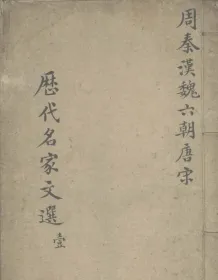 周秦漢魏六朝唐宋
歷代名家文選 壹